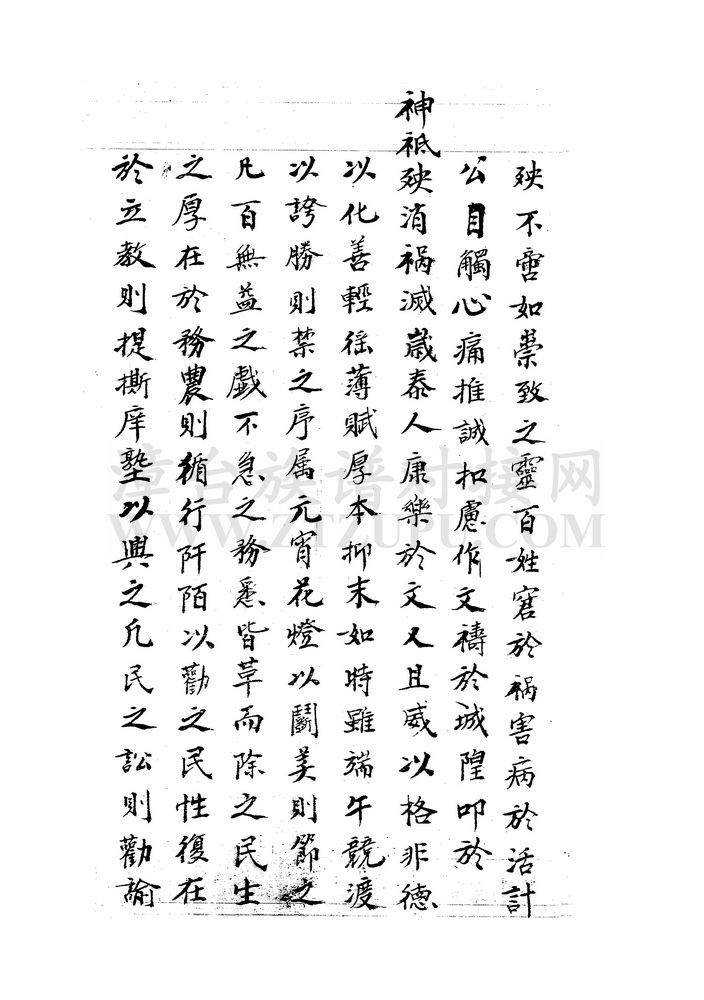 殃不啻如崇致之靈百姓窘於禍害病於活計
公目觸心痛推誠扣慮作文禱於城隍叩於
神祗殃消禍滅歲泰人康樂於文又且威以格非德
以化善輕徭薄賦厚本抑末如時雖端午競渡
以誇勝則禁之序属元宵花燈以鬪美則節之
凡百無益之戲不急之務悉皆草而除之民生
之厚在於務農則循行阡陌以勸之民性復在
於立教則提撕庠塾以興之凢民之訟則勸諭
漳台族谱对接网
WWW.ZTZUPU.COM